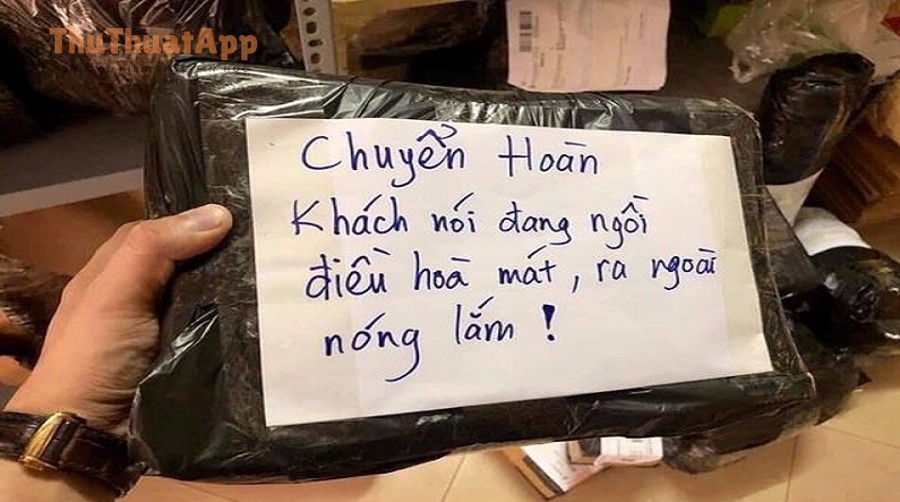 ThuThuatApp
Chuyển Hoàn
Khách nói đang ngồi
điều hoà mát, ra ngoài
nóng lắm !